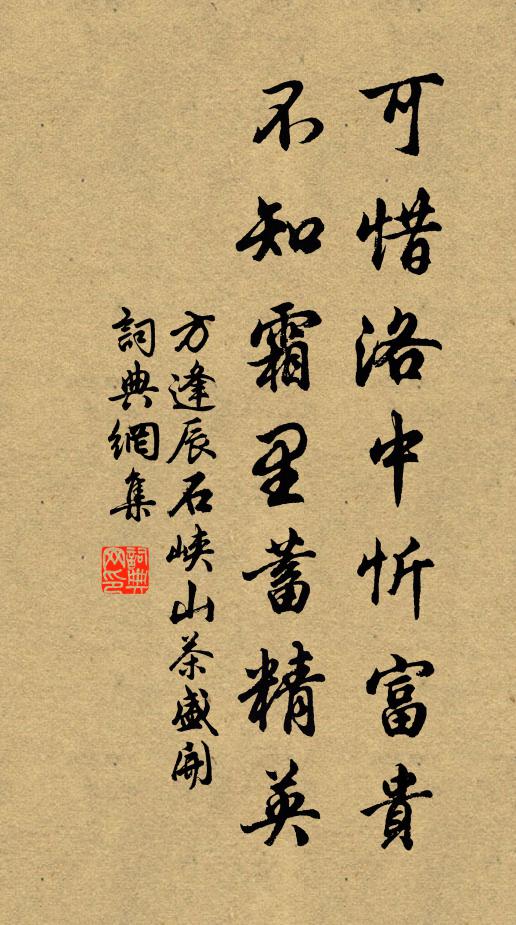 可惜洛中忻富貴
不知霜里蓄精英
方逢辰石峽山茶盛開
詞典網集
詞典網印